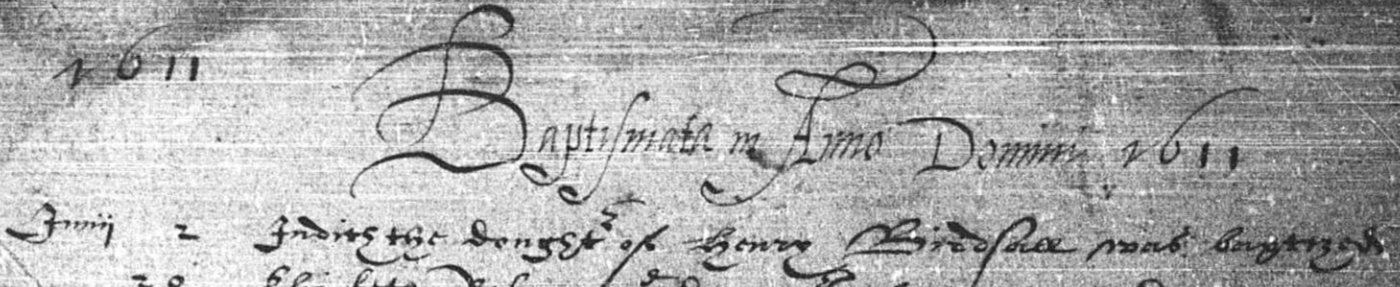 1611
Baptismata in Anno Domini 1611
Junij 2 Judith the doughtr of Henry Birdsall was baptized